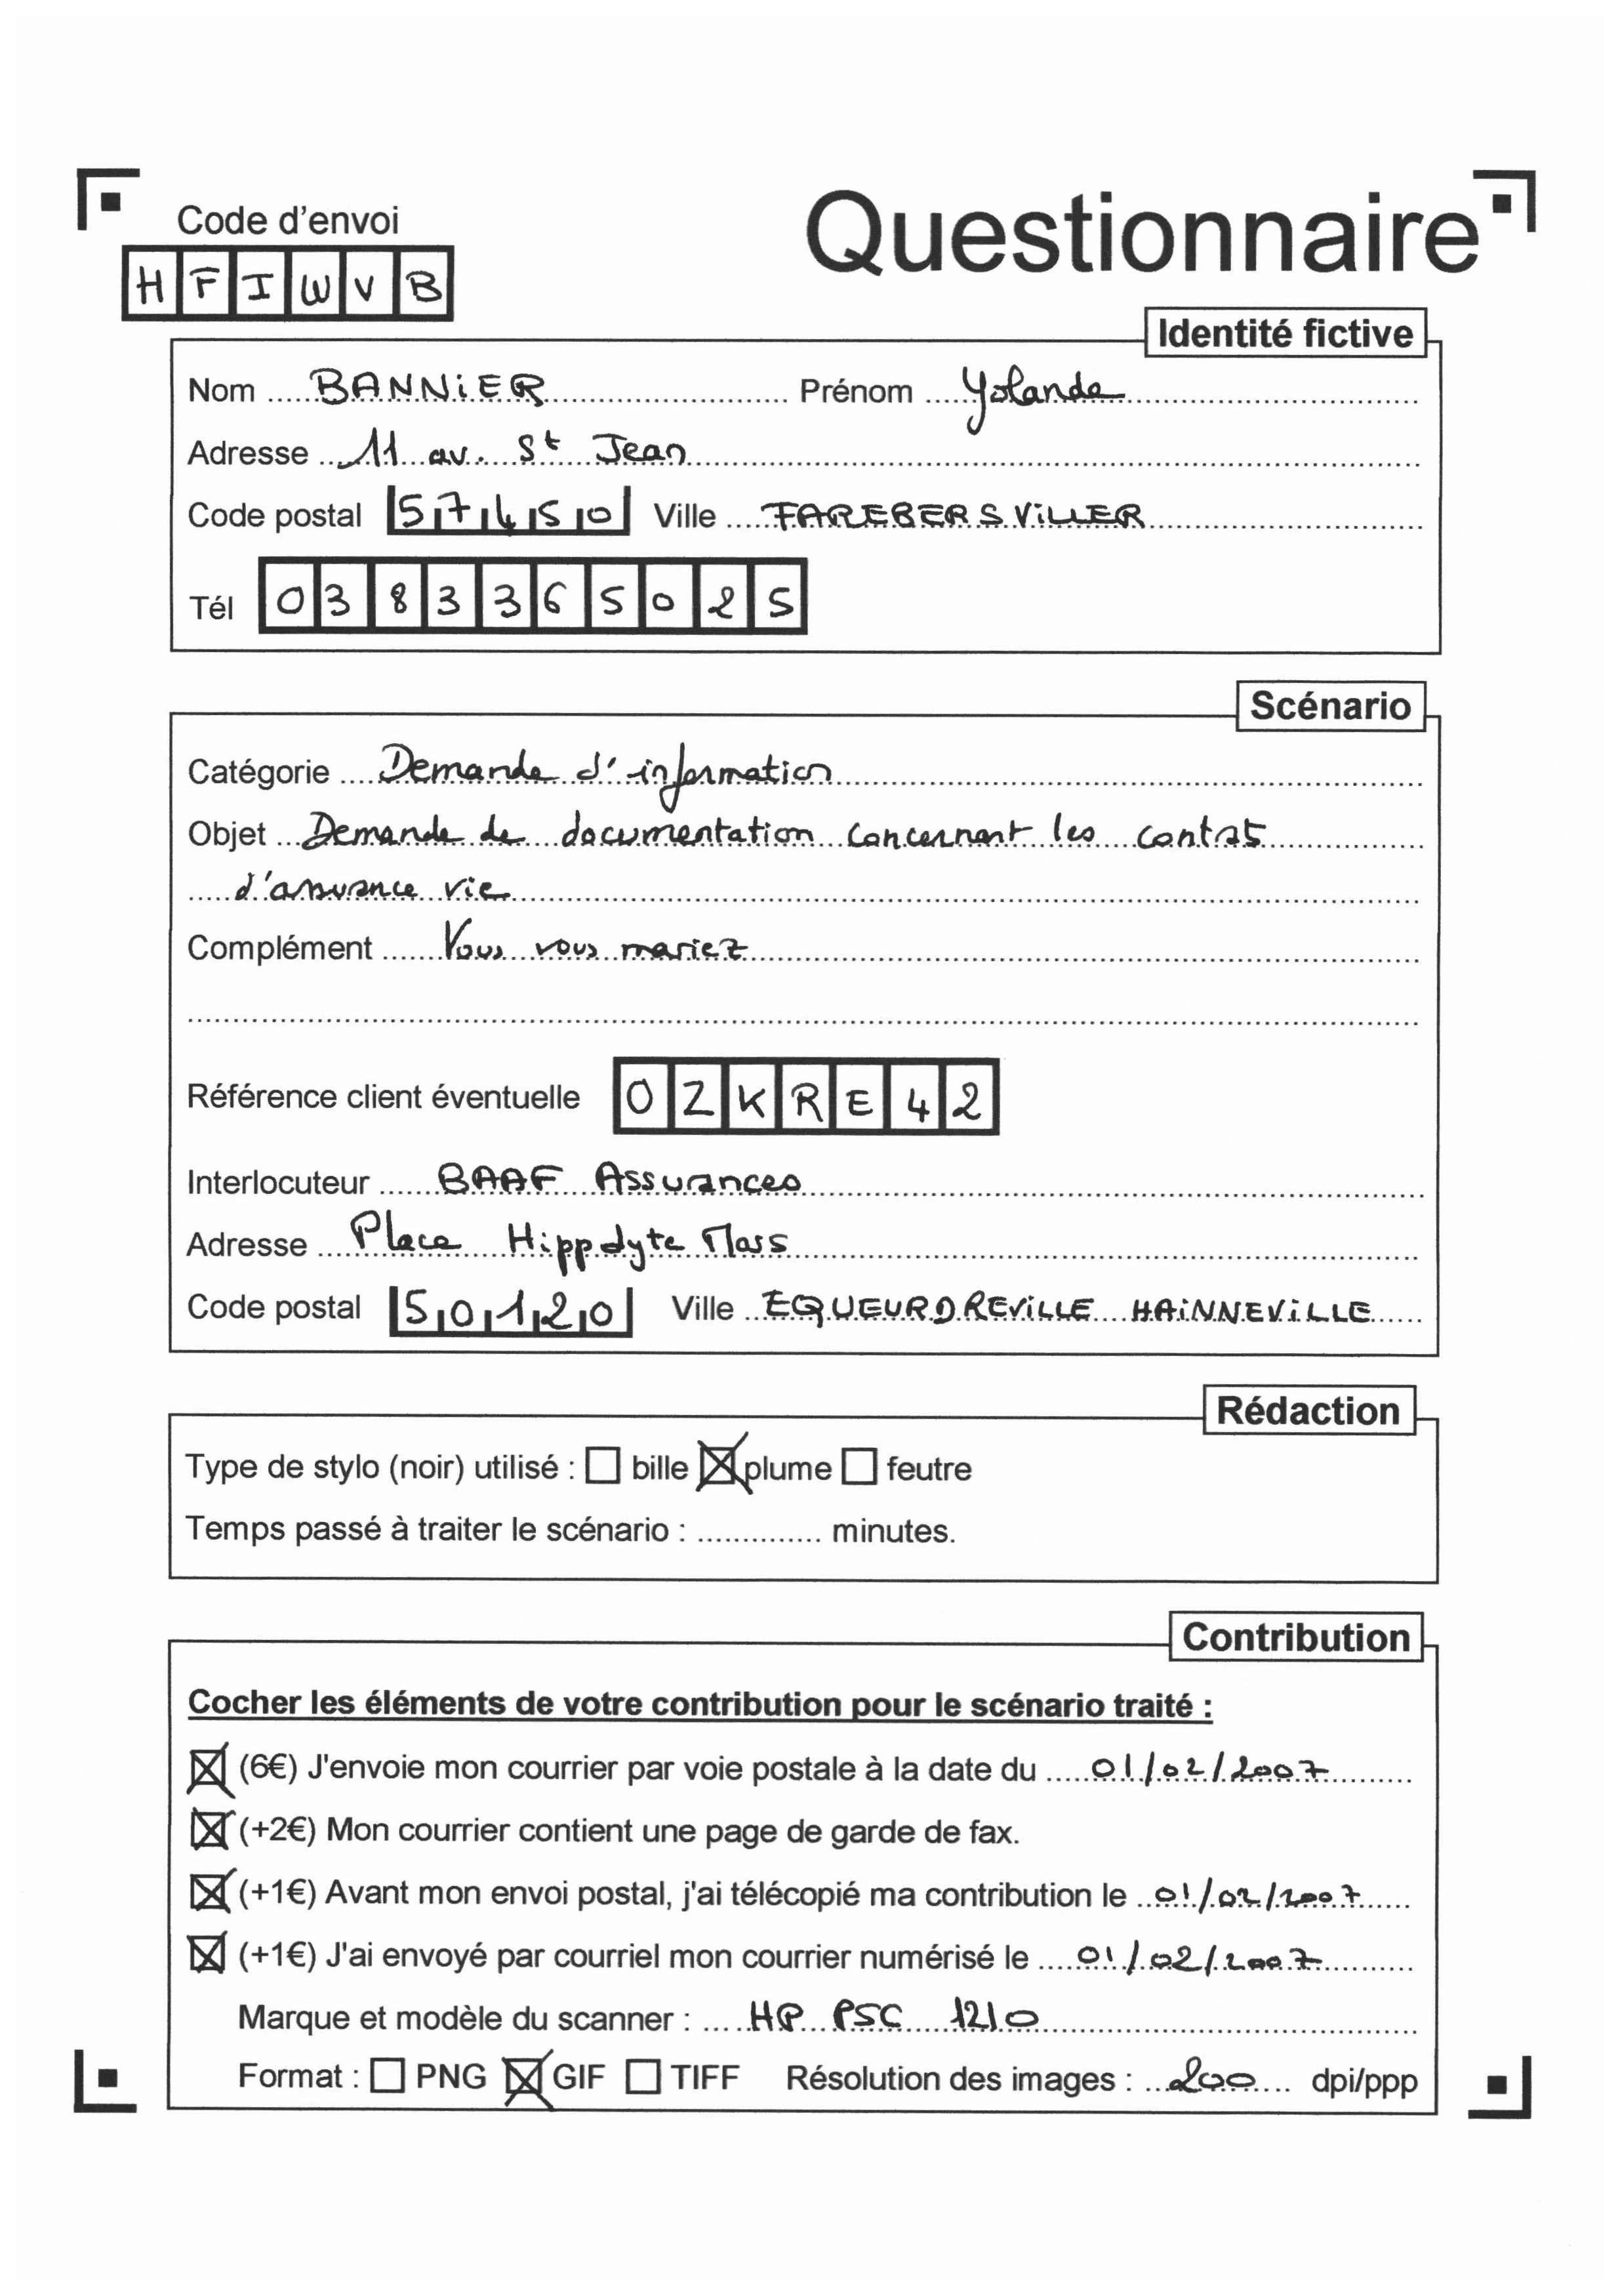 Code d'envoi
Questionnaire
H F I W V B
Identité fictive
Nom BANNiER Prénom Yolande
Adresse 11 av. St Jean
Code postal 57450 Ville FAREBERSViLLER
Tél 0383365025
Scénario
Catégorie Demande d'information
Objet Demande de documentation concernant les contrats
d'assurance vie
Complément Vous vous mariez
Référence client éventuelle OZKRE42
Interlocuteur BAAF Assurances
Adresse Place Hippolyte Mass
Code postal 50120 Ville EQUEURDREViLLE HAiNNEViLLE
Rédaction
Type de stylo (noir) utilisé : ☐ bille ☒ plume ☐ feutre
Temps passé à traiter le scénario : .............. minutes.
Contribution
Cocher les éléments de votre contribution pour le scénario traité :
☒ (6€) J'envoie mon courrier par voie postale à la date du 01/02/2007
☒ (+2€) Mon courrier contient une page de garde de fax.
☒ (+1€) Avant mon envoi postal, j'ai télécopié ma contribution le 01/02/2007
☒ (+1€) J'ai envoyé par courriel mon courrier numérisé le 01/02/2007
Marque et modèle du scanner : HP PSC 1210
Format : ☐ PNG ☒ GIF ☐ TIFF Résolution des images : 200 dpi/ppp